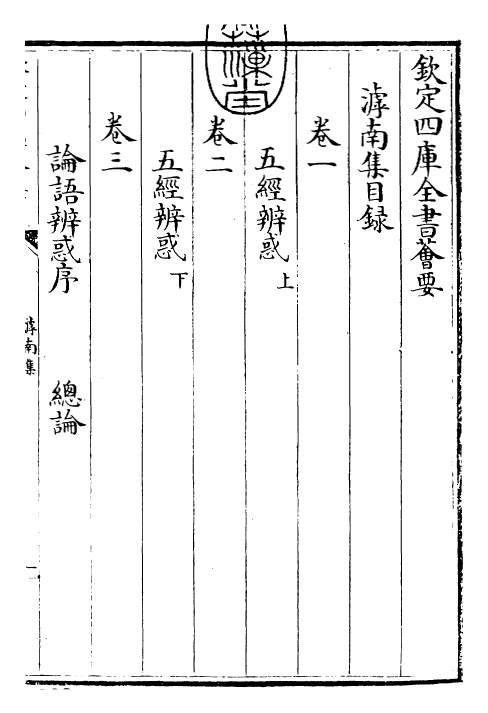 欽定四庫全書薈要
滹南集目録
卷一
五經辨惑上
卷二
五經辨惑下
卷三
論語辨惑序 總論
滹南集
一